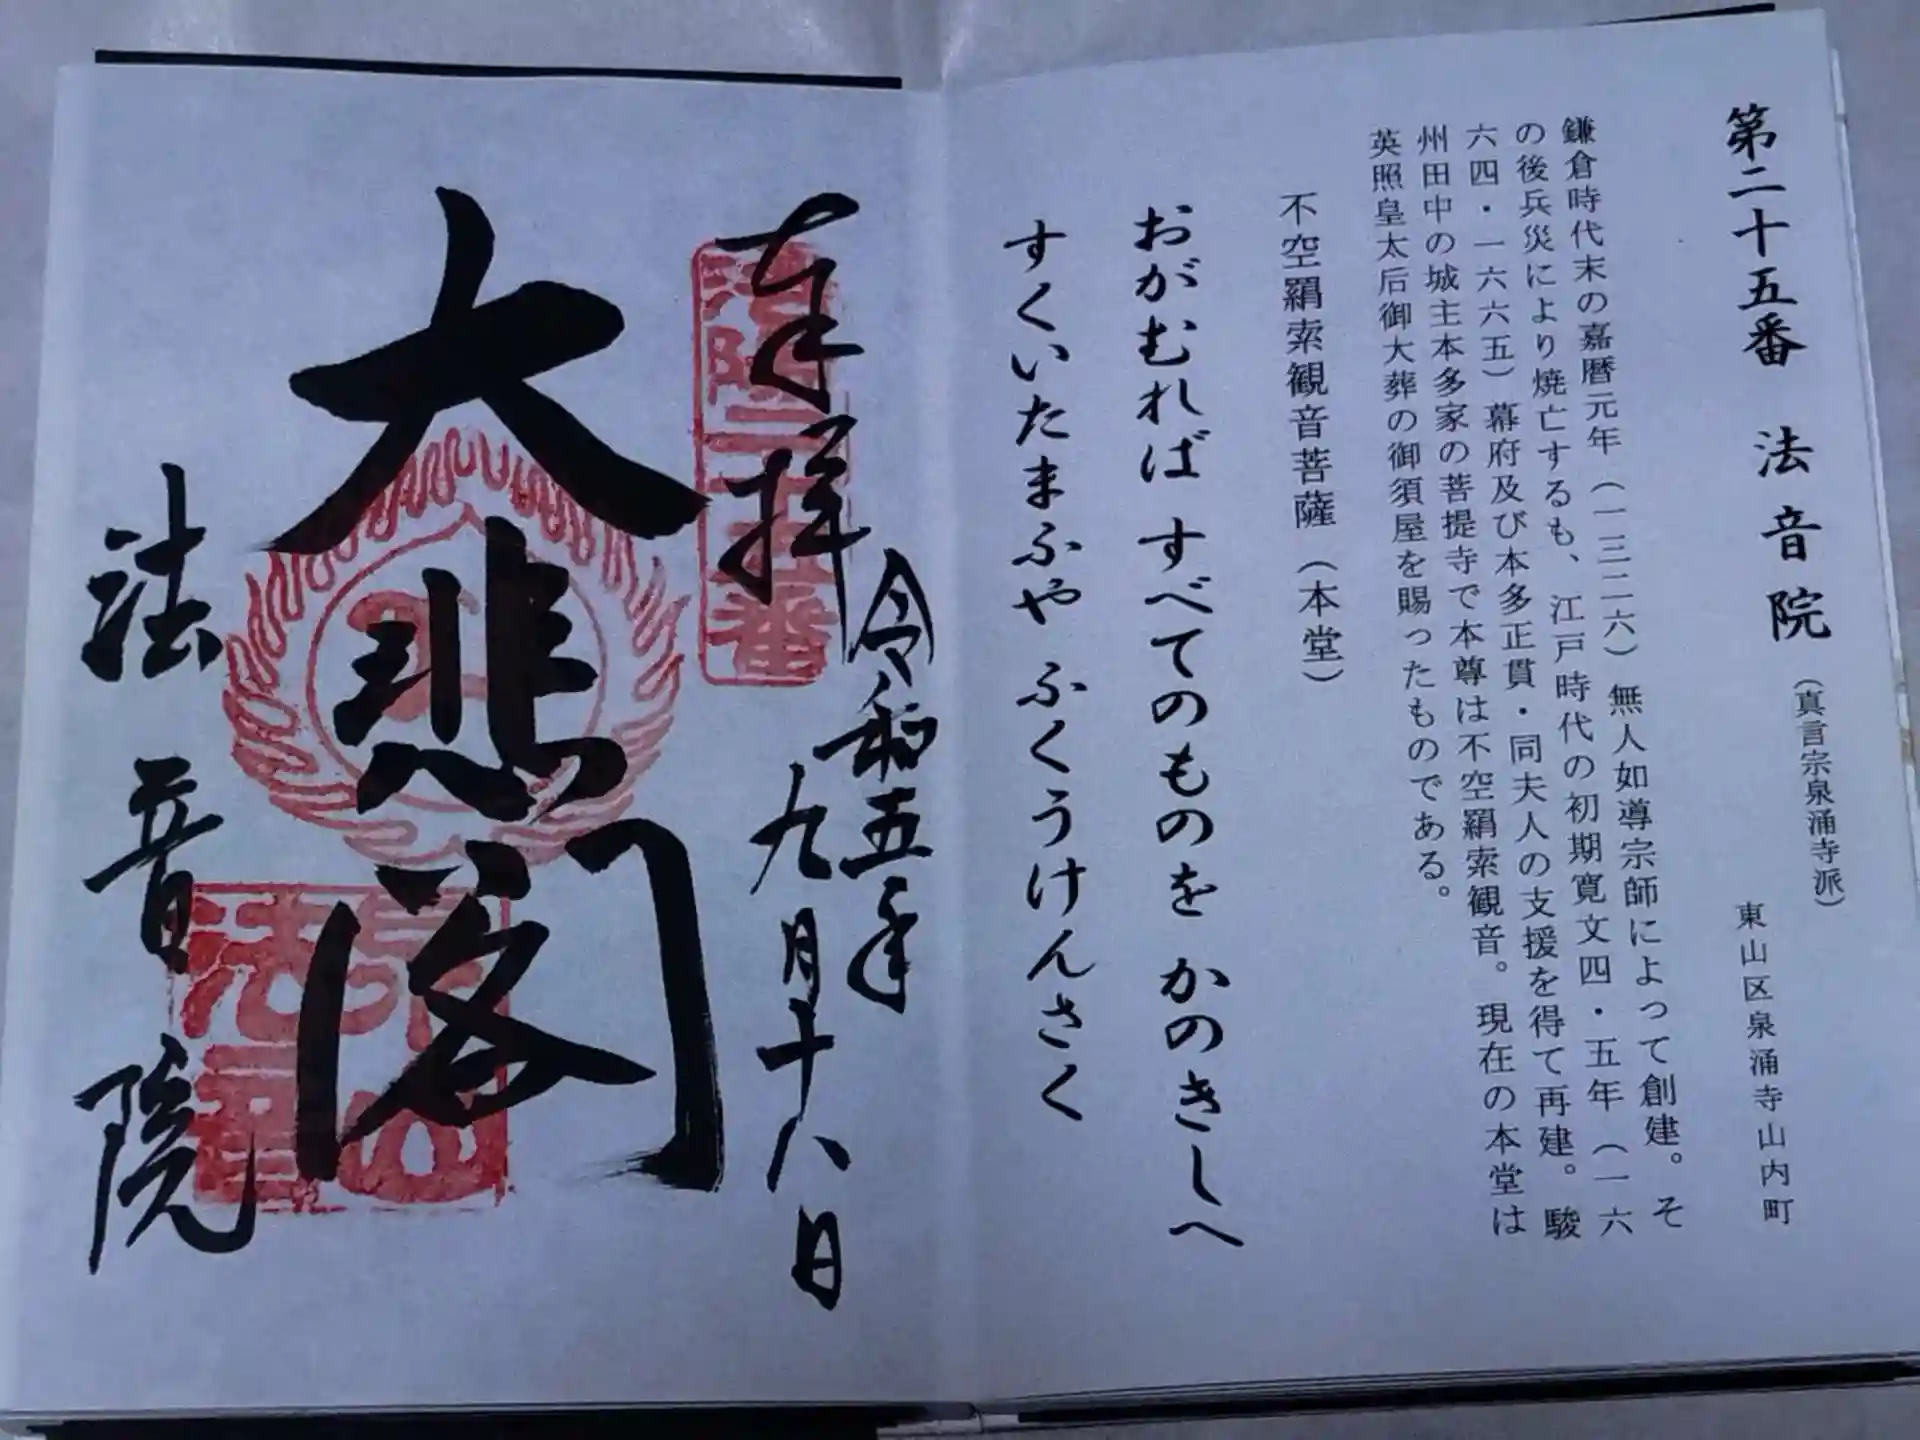 第二十五番 法音院
(真言宗泉涌寺派)
東山区泉涌寺山内町
鎌倉時代末の嘉暦元年(一三二六)無人如導宗師によって創建。そ
の後兵災により焼亡するも、江戸時代の初期寛文四・五年(一六
六四・一六六五)幕府及び本多正貫・同夫人の支援を得て再建。駿
州田中の城主本多家の菩提寺で本尊は不空羂索観音。現在の本堂は
英照皇太后御大葬の御須屋を賜ったものである。
不空羂索観音菩薩(本堂)
おがむれば すべてのものを かのきしへ
すくいたまふや ふくうけんさく
奉拝
令和五年
九月十八日
洛陽二十五番
大悲閣
法音院